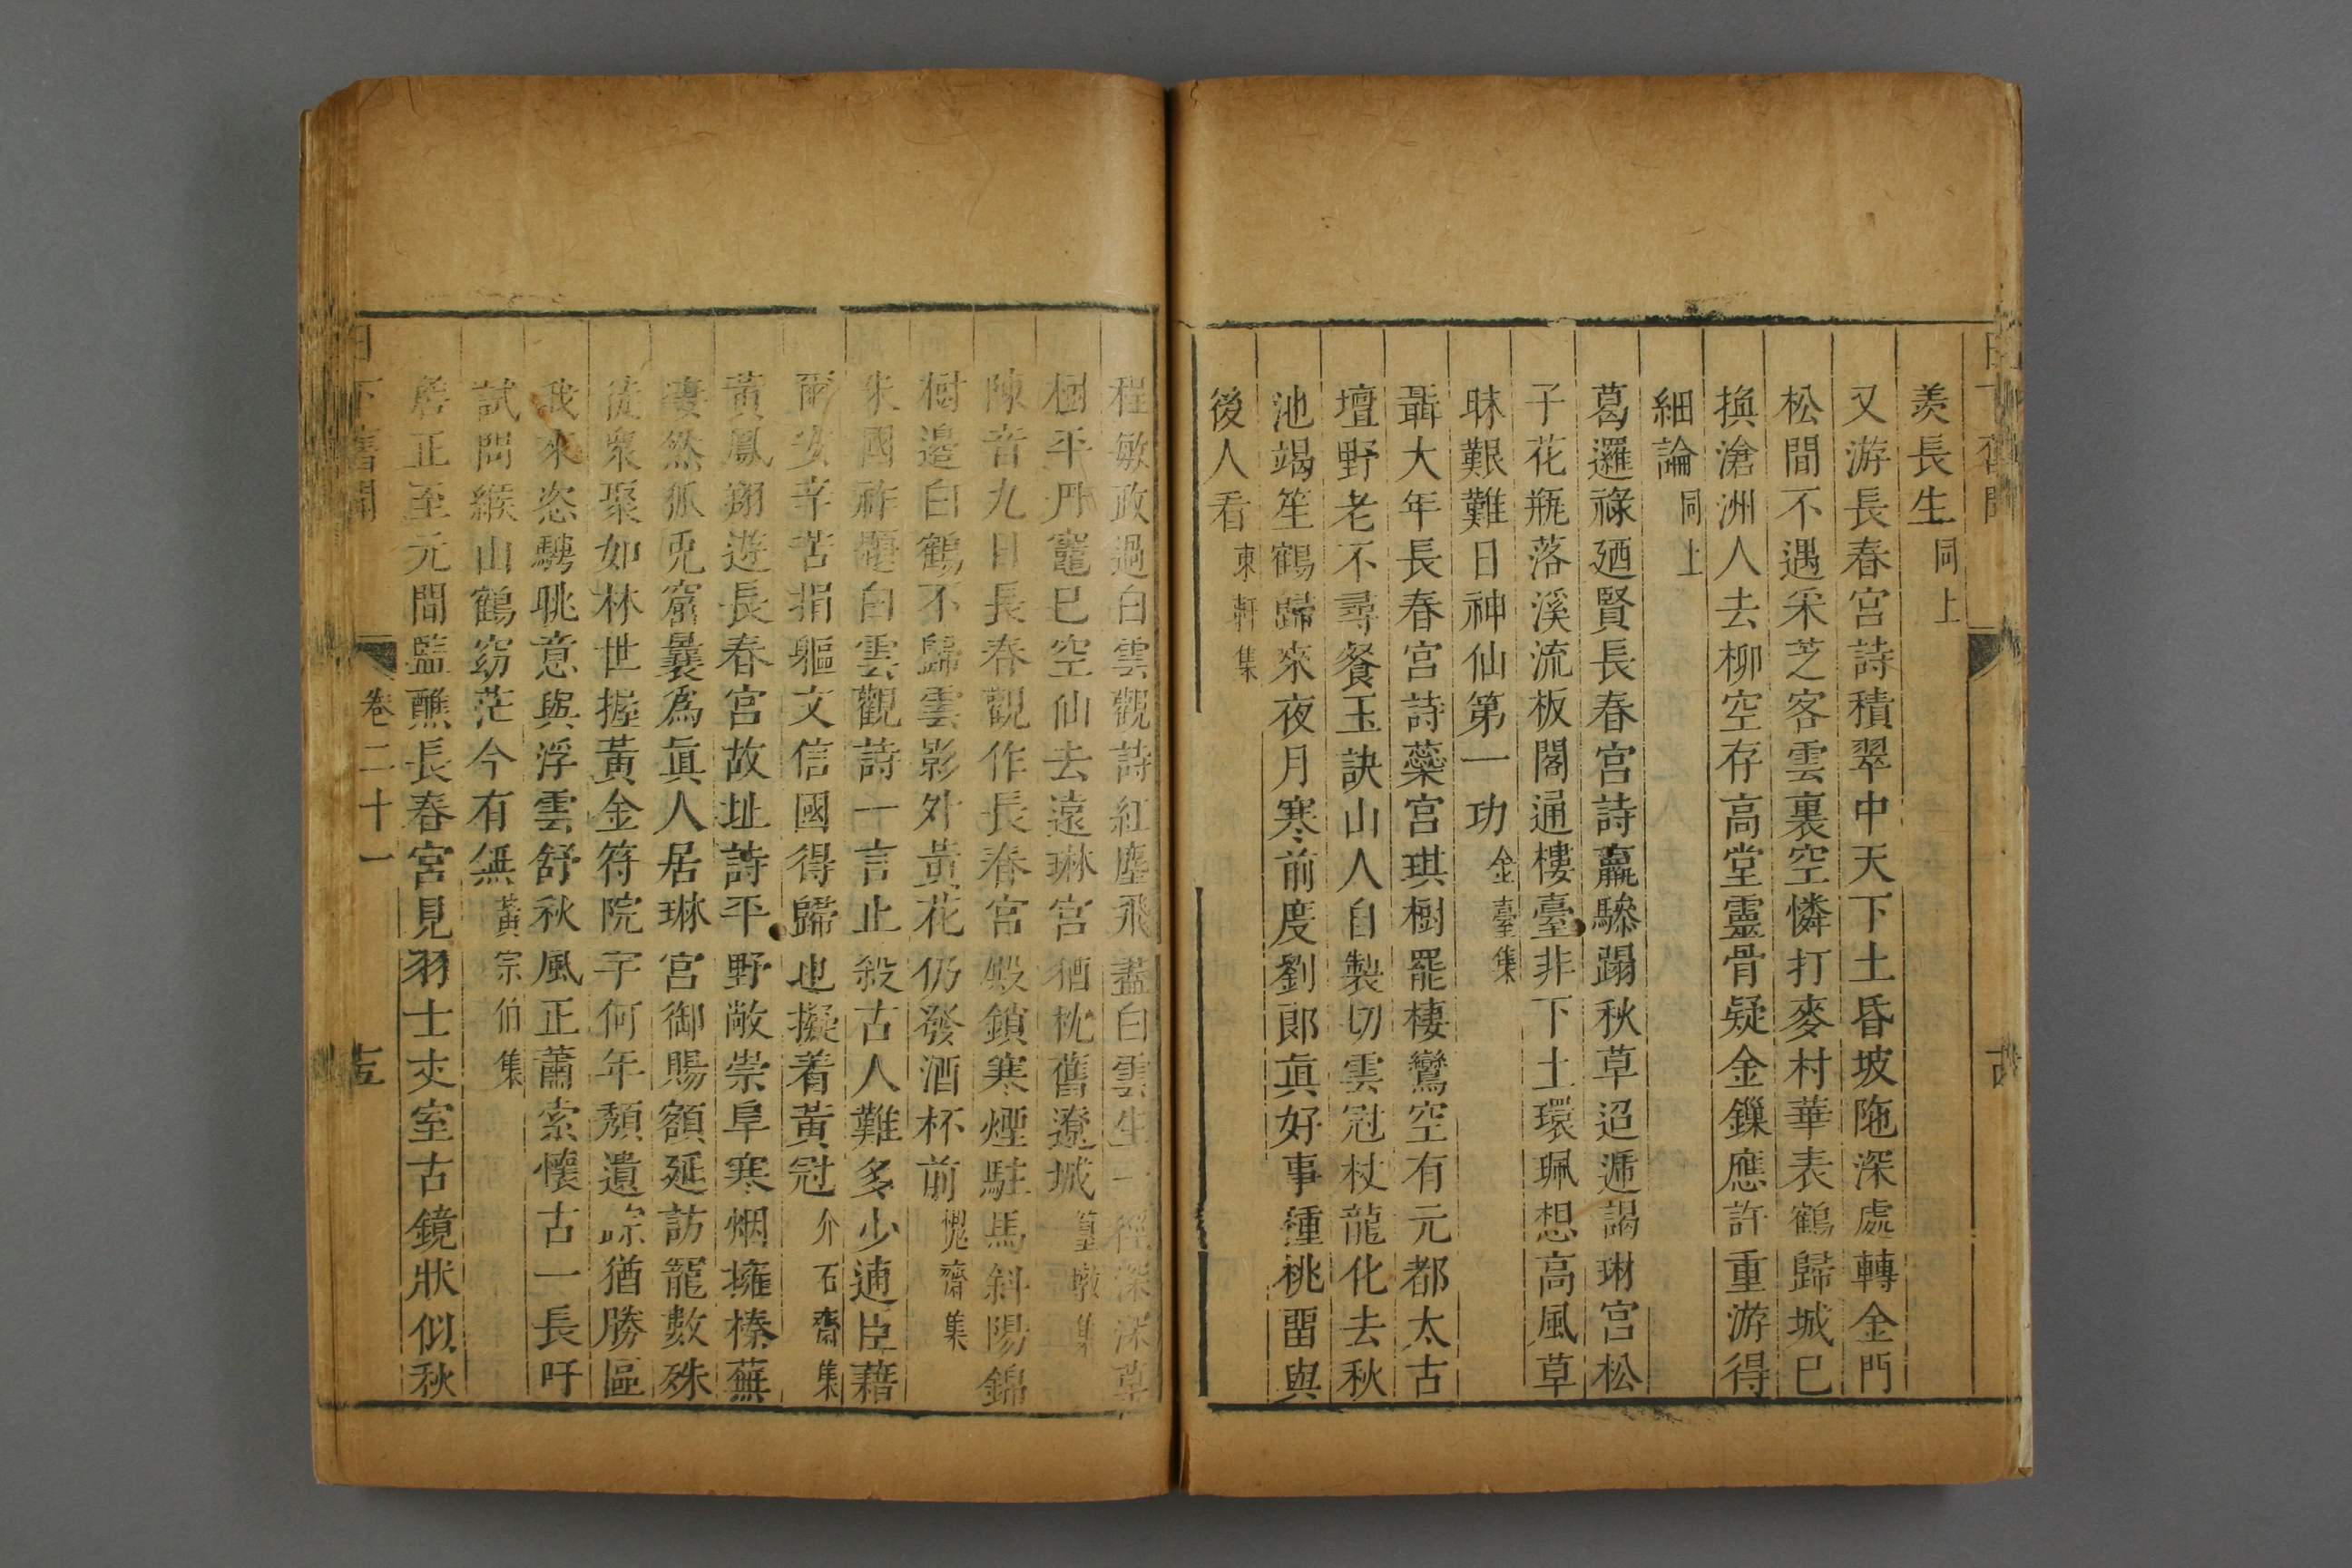 羨長生同上
又游長春宮詩積翠中天下土昏坡陁深處轉金門
松間不遇采芝客雲裏空憐打麥村華表鶴歸城巳
換滄洲人去柳空存高堂靈骨疑金鏁應許重游得
細論同上
葛邏祿廼賢長春宮詩驘驂蹋秋草迢遞謁琳宮松
子花瓶落溪流板閣通樓臺非下土環珮想高風草
昧艱難日神仙第一功金臺集
聶大年長春宮詩蘂宮琪樹罷棲鸞空有元都太古
壇野老不尋餐玉訣山人自製切雲冠杖龍化去秋
池竭笙鶴歸來夜月寒前度劉郎眞好事種桃畱與
後人看東軒集
程敏政過白雲觀詩紅塵飛盡白雲生一徑深深草
樹平丹竈巳空仙去遠琳宮猶枕舊遼城篁墩集
陳音九日長春觀作長春宮殿鎖寒煙駐馬斜陽錦
樹邉白鶴不歸雲影外黃花仍發酒杯前愧齋集
朱國祚題白雲觀詩一言止殺古人難多少逋臣藉
爾安辛苦捐軀文信國得歸也擬着黃冠介石齋集
黃鳳翔遊長春宮故址詩平野敞崇阜寒烟擁榛蕪
凄然狐兎窟曩爲眞人居琳宮御賜額延訪寵數殊
徒衆聚如林世握黃金符院宇何年頽遺踪猶勝區
我來恣騁眺意與浮雲舒秋風正蕭索懷古一長吁
試問緱山鶴窈茫今有無黃宗伯集
嘗正至元間監醮長春宮見羽士丈室古鏡狀似秋
日下舊聞 卷二十一 十五